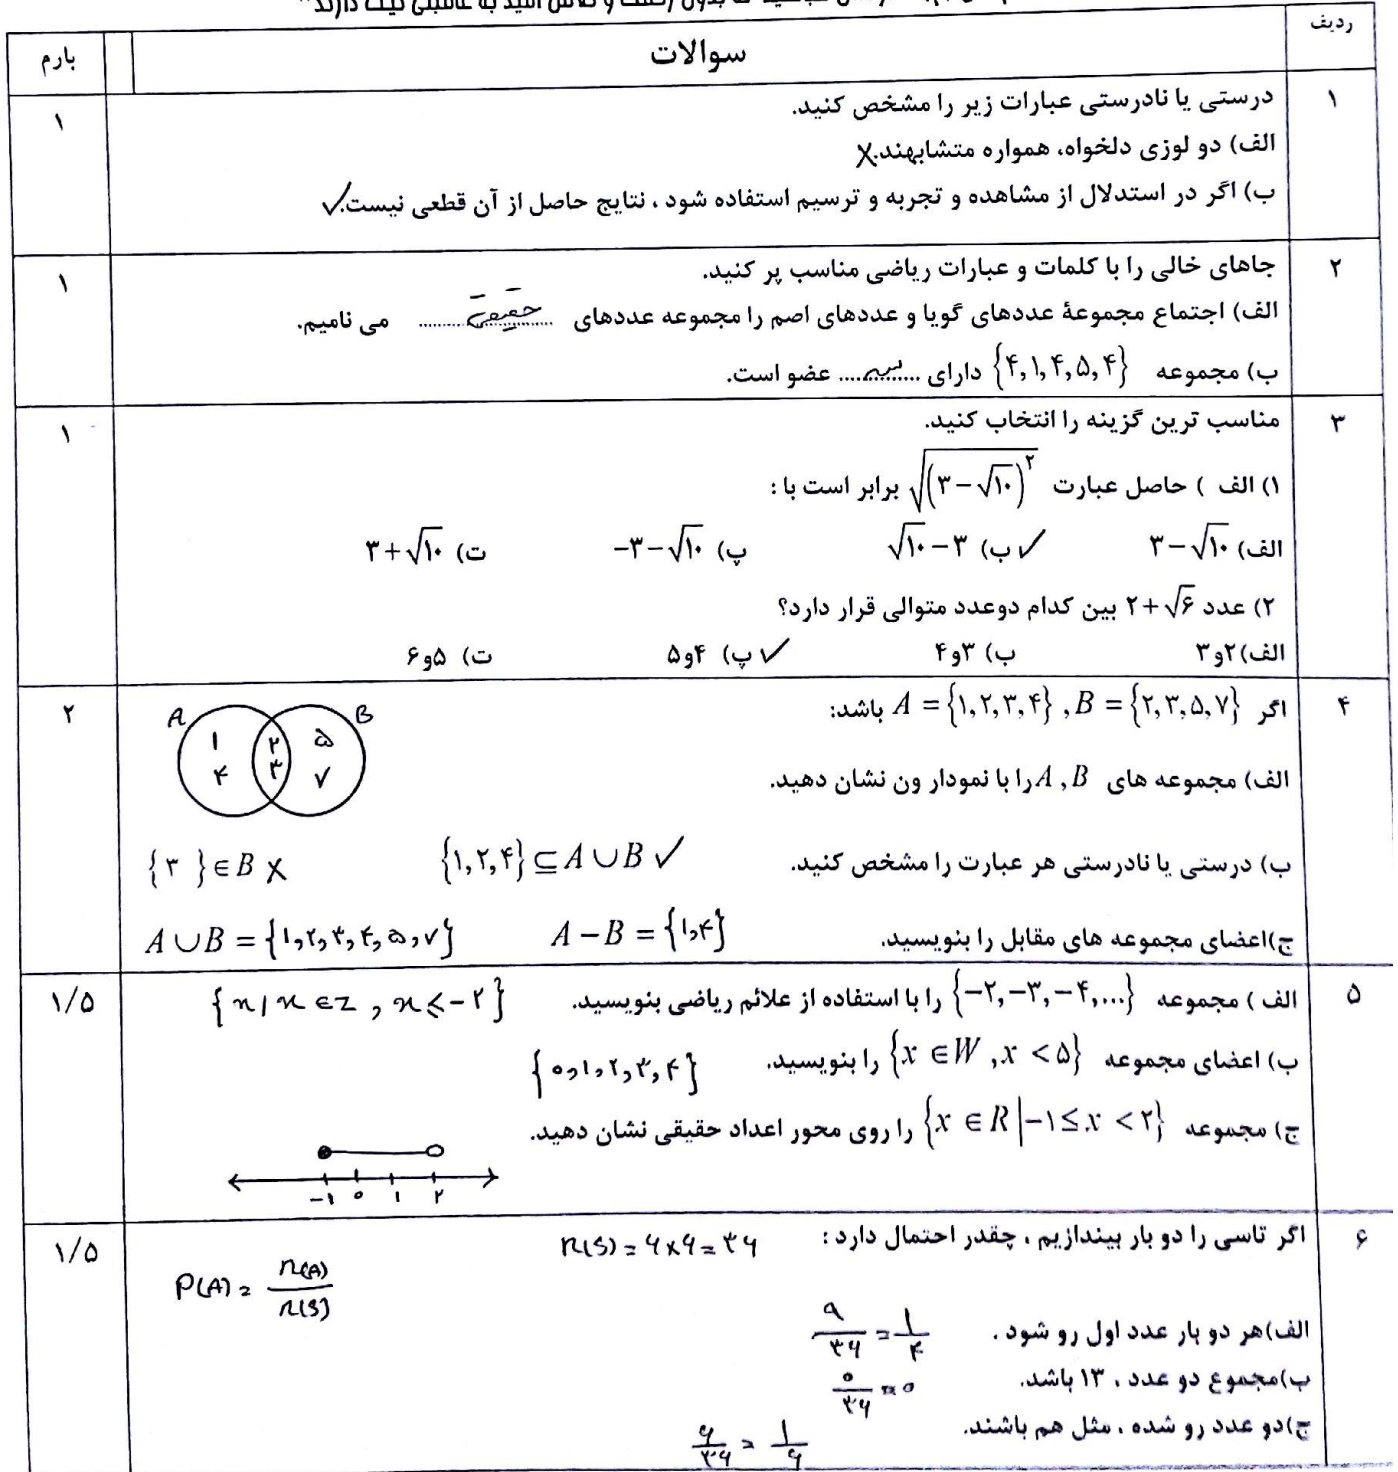 ردیف
سوالات
بارم
۱
درستی یا نادرستی عبارات زیر را مشخص کنید.
۱
الف) دو لوزی دلخواه، همواره متشابهند. ×
ب) اگر در استدلال از مشاهده و تجربه و ترسیم استفاده شود ، نتایج حاصل از آن قطعی نیست. ✓
۲
جاهای خالی را با کلمات و عبارات ریاضی مناسب پر کنید.
۱
الف) اجتماع مجموعهٔ عددهای گویا و عددهای اصم را مجموعه عددهای ....حقیقی.... می نامیم.
ب) مجموعه {۴,۱,۴,۵,۴} دارای ....سه.... عضو است.
۳
مناسب ترین گزینه را انتخاب کنید.
۱
۱) الف ) حاصل عبارت √(۳-√۱۰)^۲ برابر است با :
الف) ۳-√۱۰ ب) √۱۰-۳ ✓ پ) -۳-√۱۰ ت) ۳+√۱۰
۲) عدد ۲+√۶ بین کدام دوعدد متوالی قرار دارد؟
الف) ۲و۳ ب) ۳و۴ پ) ۴و۵ ✓ ت) ۵و۶
۴
اگر A={۱,۲,۳,۴} , B={۲,۳,۵,۷} باشد:
۲
A B
۱ ۲ ۵
۴ ۳ ۷
الف) مجموعه های A , B را با نمودار ون نشان دهید.
ب) درستی یا نادرستی هر عبارت را مشخص کنید. {۱,۲,۴} ⊆ A ∪ B ✓ {۳ } ∈ B ×
ج)اعضای مجموعه های مقابل را بنویسید. A − B = {۱,۴} A ∪ B = {۱,۲,۳,۴,۵,۷}
۵
الف ) مجموعه {-۲,-۳,-۴,...} را با استفاده از علائم ریاضی بنویسید. {x | x ∈ Z , x ≤ -۲}
۱/۵
ب) اعضای مجموعه {x ∈ W , x < ۵} را بنویسید. {۰,۱,۲,۳,۴}
ج) مجموعه {x ∈ R | -۱ ≤ x < ۲} را روی محور اعداد حقیقی نشان دهید.
-۱ ۰ ۱ ۲
۶
اگر تاسی را دو بار بیندازیم ، چقدر احتمال دارد : n(S) = ۶×۶ = ۳۶
۱/۵
P(A) = n(A)/n(S)
الف)هر دو بار عدد اول رو شود . ۹/۳۶ = ۱/۴
ب)مجموع دو عدد ، ۱۳ باشد. ۰/۳۶ = ۰
ج)دو عدد رو شده ، مثل هم باشند. ۶/۳۶ = ۱/۶